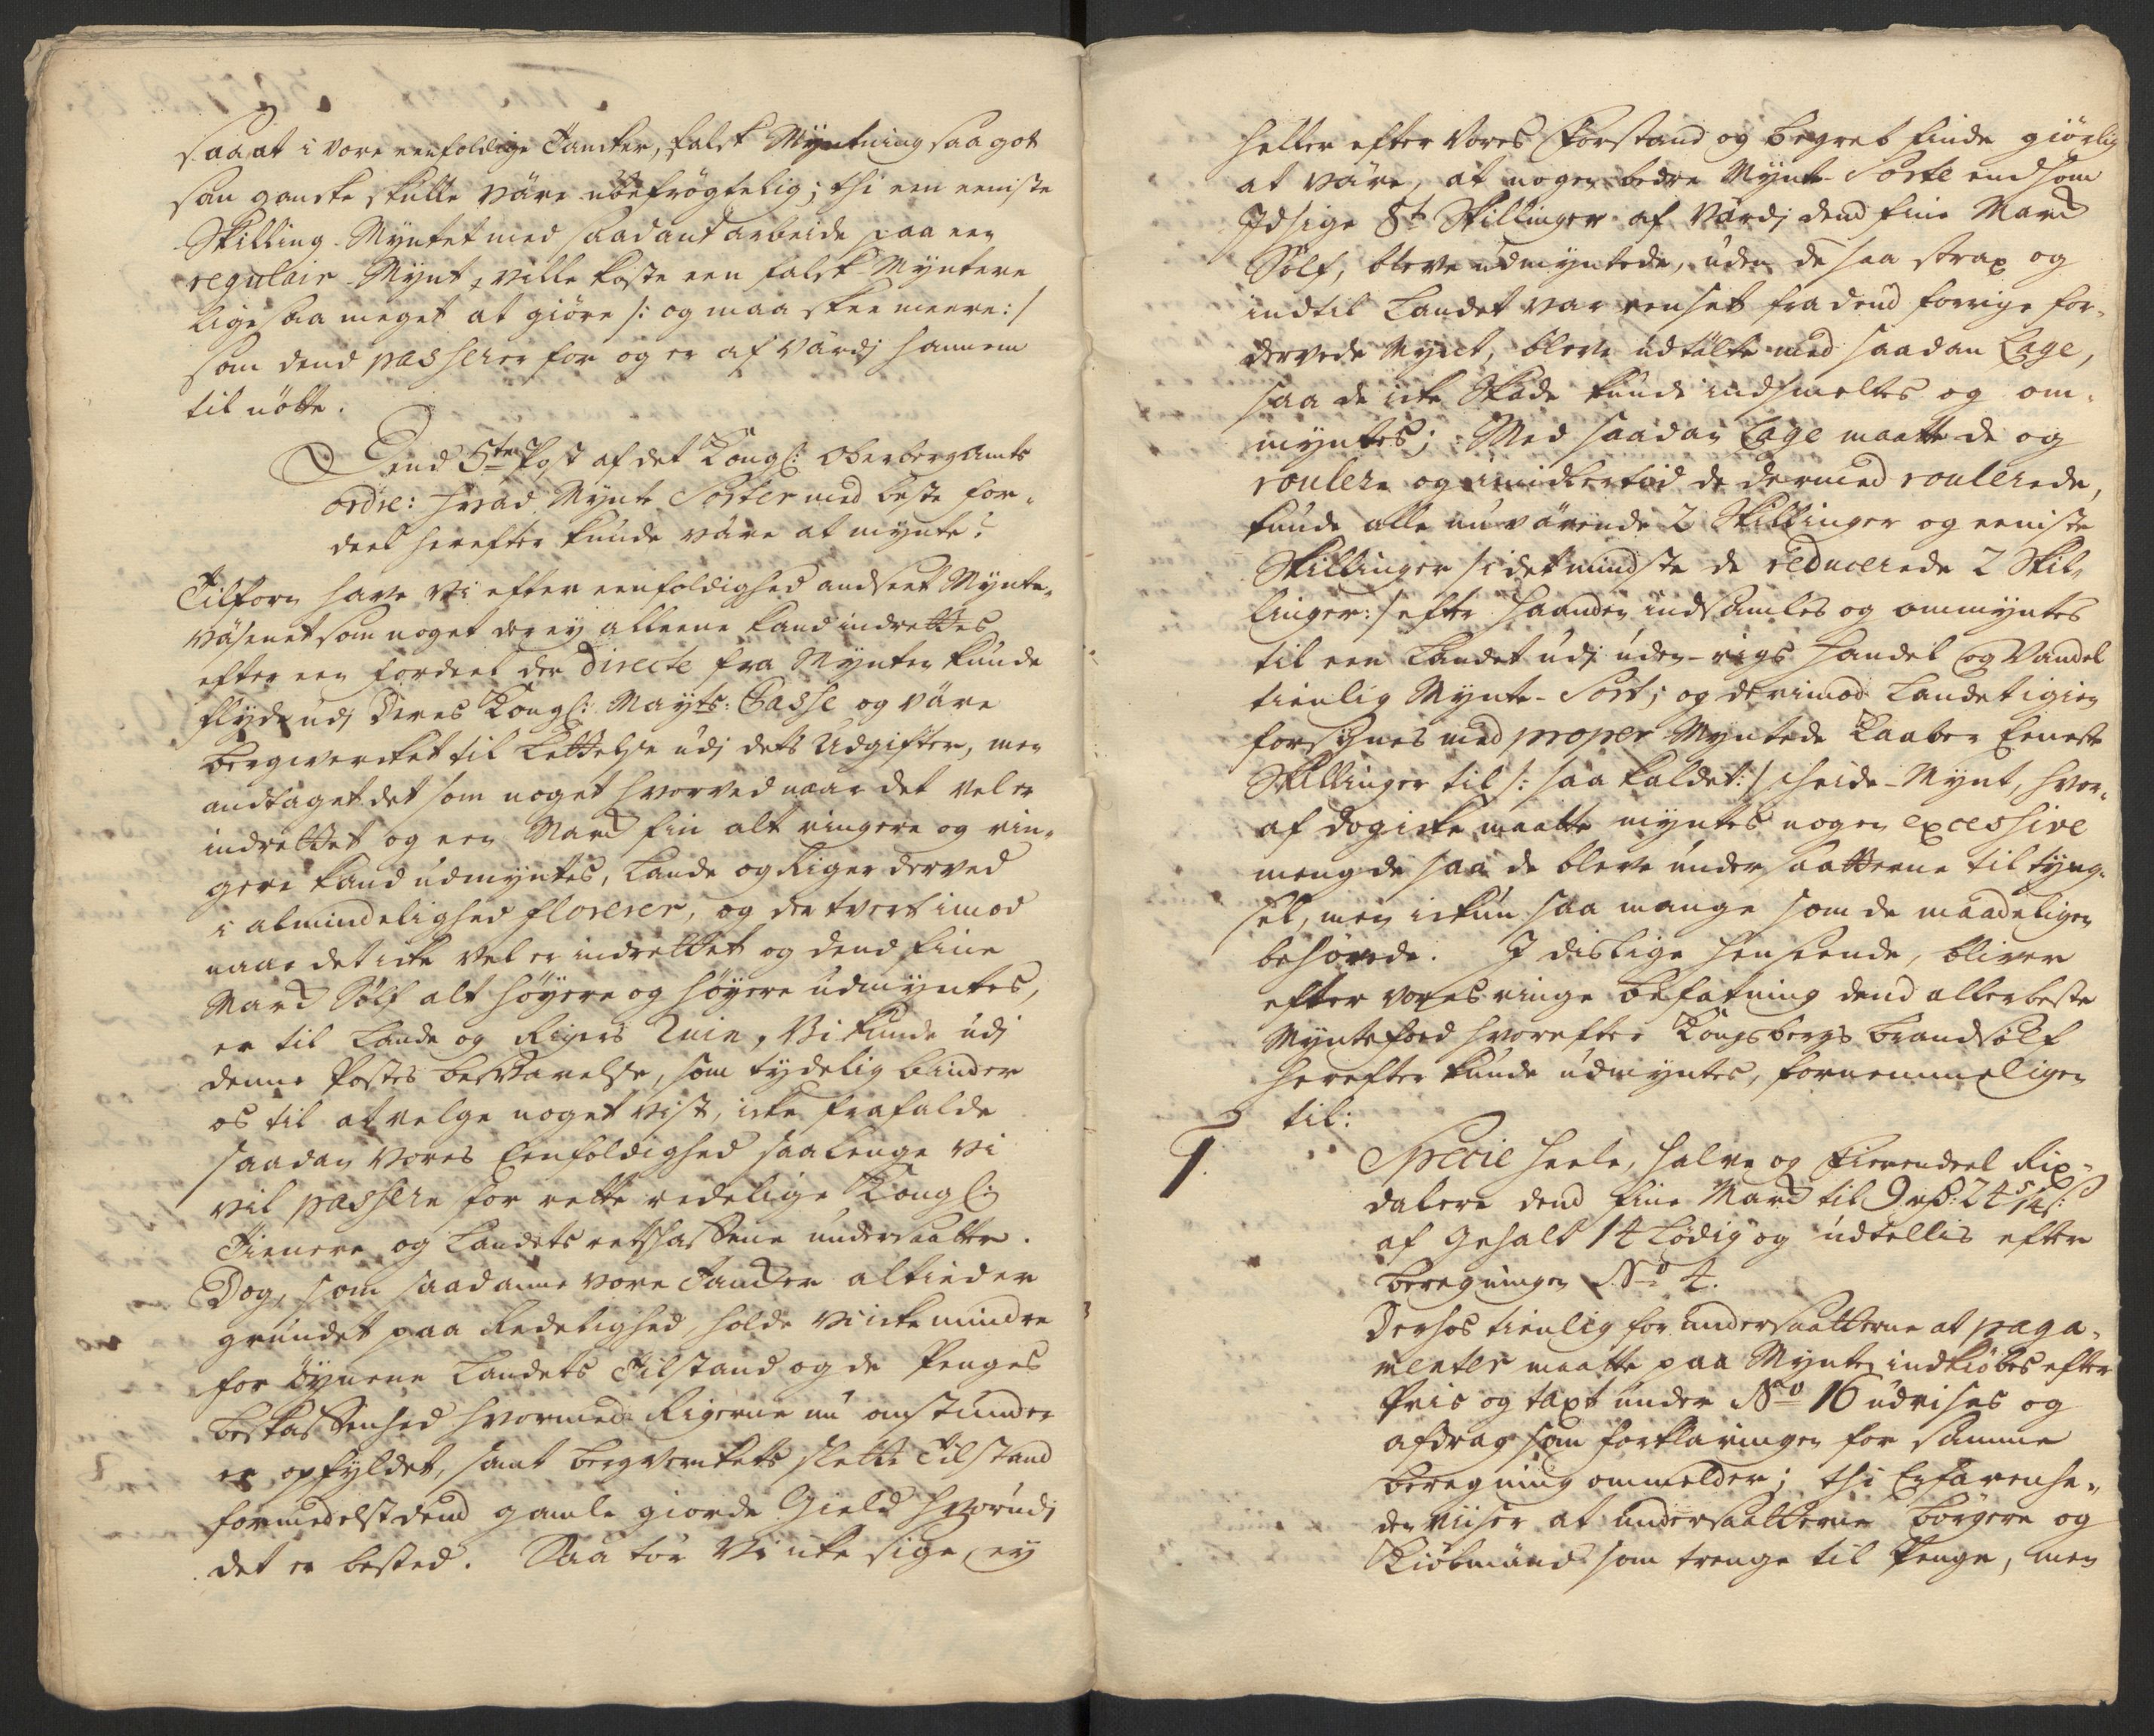 saa at i vore eenfoldige Tancker, falsk Myntning saa got
som ganske skulle være ubefrögtelig; thi een eeniste
Skilling-Myntet med saadant arbeide paa een
regulair-Mynt, ville koste een falsk-Myntere
ligesaa meget at giöre /: og maa skee meere :/
som dend passerer for og er af værdj hannem
til nötte.
Dend 5te Post af det Kongl: Oberbergamts
ordre: Hvad Mynte Sorter med beste for-
deel herefter kunde være at mynte?
Tilforn have vi efter eenfoldighed andseet Mynte-
væsenet som noget der ey alleene kand indrettes
efter een fordeel der directe fra Mynten kunde
flyde udj Deres Kongl: Mayts: Casse og være
bergwercket til Lettelse udj dets Udgifter, men
andtaget det som noget hvorved naar det vel er
indrettet og een Marck fin alt ringere og rin-
gere kand udmyntes, Lande og Riger derved
i almindelighed florerer, og der tvert imod
naar det icke vel er indrettet og dend fine
Marck Sölf alt höyere og höyere udmyntes,
er til Lande og Rigers Ruin, Vi kunde udj
denne Postes besvarelse, som tydelig binder
os til at velge noget vist, icke frafalde
saadan vores Eenfoldighed saa lenge vi
vil passere for rette redelige Kongl:
Tienere og Landets retskafene undersaatter.
Dog, som saadanne vore Tancker altieder
grundet paa Redelighed, holde vi icke mindre
for öynene Landets Tilstand og de Penges
beskaffenhed hvormed Rigerne nu omstunder
er opfyldet, samt bergverckets slette Tilstand
formedelst dend gamle giorde Gield hvorudj
det er bested. Saa tör Vi icke sige, ey
heller efter vores Forstand og begreb finde giörlig
at være, at nogen bedre Mynte-Sorte end som
Idsige 8te Skillinger af værdj dend fine Marck
Sölf, bleve udmyntede, uden de saa strax og
indtil Landet var renset fra dend forrige for-
dervede Mynt, bleve udtalte med saadan Lage,
saa de icke Skade kunde indsmeltes og om-
myntes; Med saadan Lage maatte de og
roulere og imidlertid de dermed roulerede,
kunde alle nuværende 2 Skillinger og eeniste
Skillinger /: i det mindste de reducerede 2 Skil-
linger :/ efter haanden indsamles og ommyntes
til een Landet udj uden-rigs handel og Vandel
tienlig Mynte-Sort; og derimod Landet igien
forsÿnes med proper Myntede Kaaber Eeneste
Skillinger til /: saa kaldet :/ scheide-Mynt, hvor-
af dog icke maatte myntes nogen excessive
mengde saa de bleve undersaatterne til tyng-
sel, men ickun saa mange som de maadeligen
behövede. I dislige henseende, bliver
efter vores ringe befatning dend allerbeste
Myntefoed hvorefter Kongsbergs brandsölf
herefter kunde udmyntes, fornemmeligen
til:
1. Specie heele, halve og Fierendeel Rix-
dalere dend fine Marck til 9 rd: 24 5/7 s:
af Gehalt 14 Lödig og udtellis efter
beregningen No 4.
Derhos tienlig for undersaatterne at paga-
menter maatte paa Mynten indkiöbes efter
Pris og taxt under No 16 udvises og
afdrag som forklaringen for samme
beregning ommelder; thi Erfarenhe-
den viiser at undersaatterne Borgere og
Kiöbmænd som trenge til Penge, men